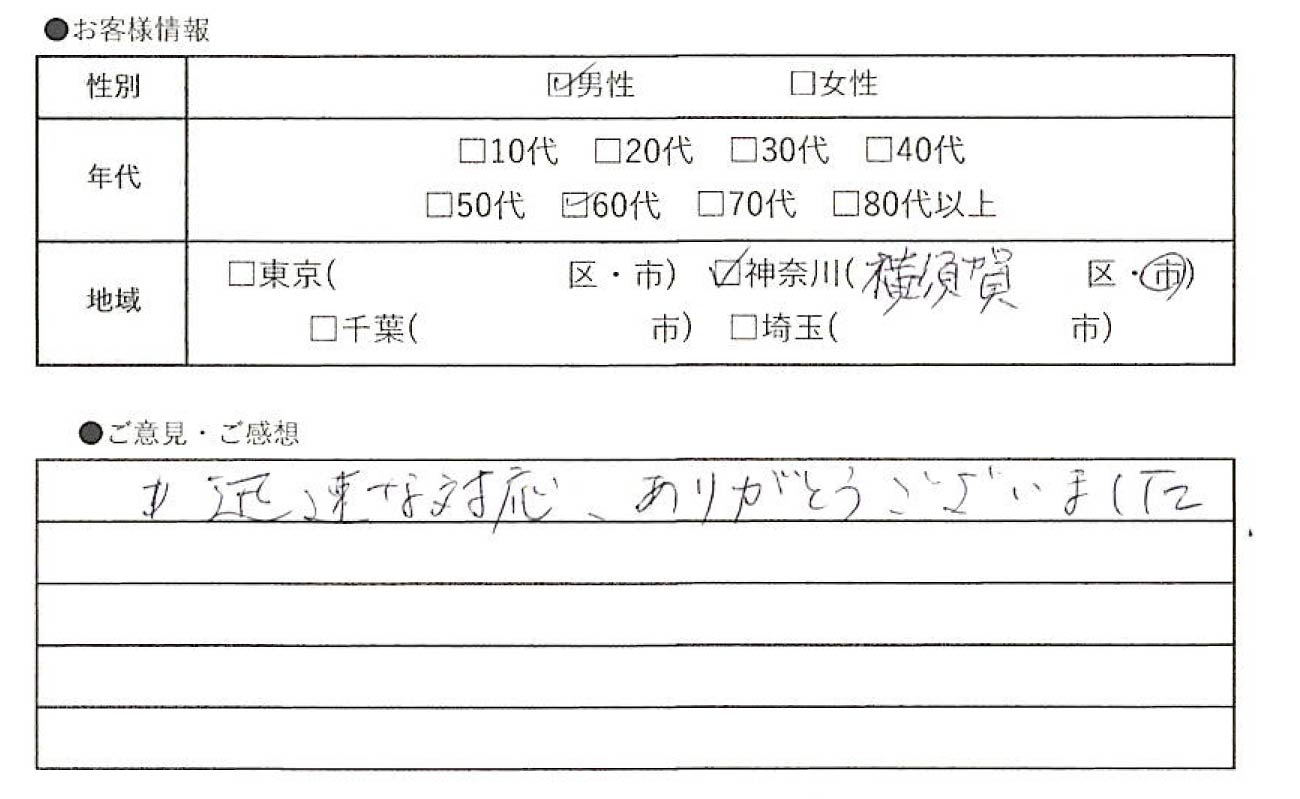 ●お客様情報
性別 ☑男性 □女性
年代 □10代 □20代 □30代 □40代
□50代 ☑60代 □70代 □80代以上
地域 □東京( 区・市) ☑神奈川(横須賀 区・市)
□千葉( 市) □埼玉( 市)
●ご意見・ご感想
迅速な対応、ありがとうございました